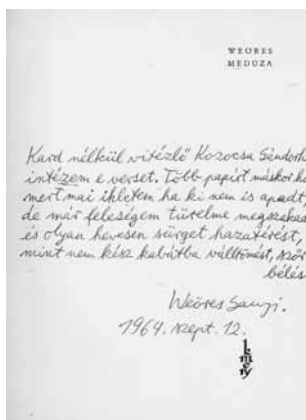 WEÖRES
MEDÚZA
Kard nélkül vitézlő Kozocsa Sándorh
intézem e verset. Több papírt máskor ke
mert mai ihletem ha ki nem is apadt,
de már feleségem türelme megszakad
és olyan hevesen sürget hazatérést,
mint nem kész kabátba válltömést, szőr
bélés
Weöres Sanyi.
1964. szept. 12.